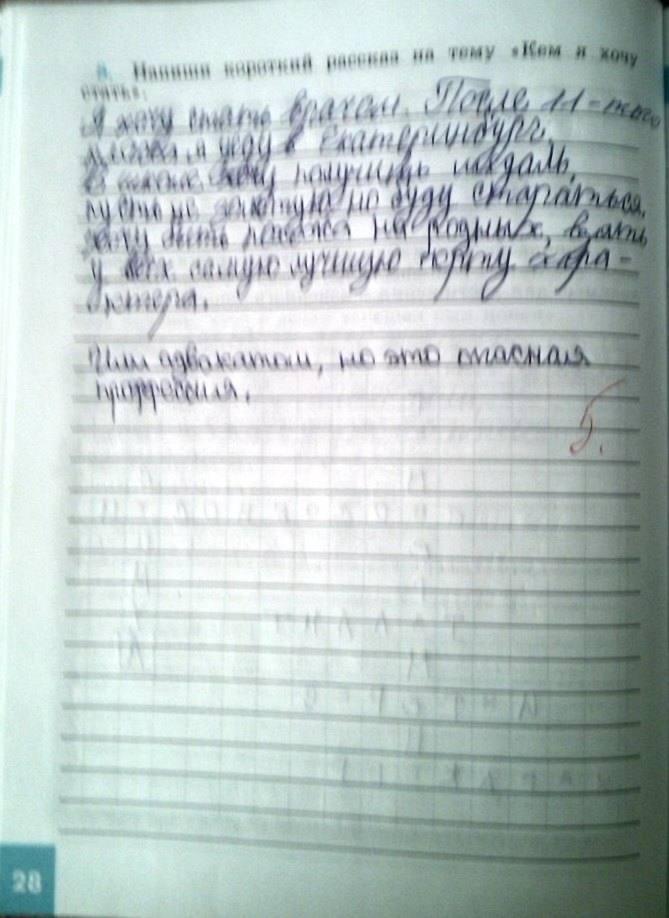 8. Напиши короткий рассказ на тему «Кем я хочу
стать».
Я хочу стать врачом. После 11-того
я уеду в Екатеринбург.
В школе хочу получить медаль,
пусть не золотую но буду стараться.
хочу быть похожа на родных, взять
у всех самую лучшую черту хара-
ктера.
Или адвокатом, но это опасная
проффессия.
5.
28